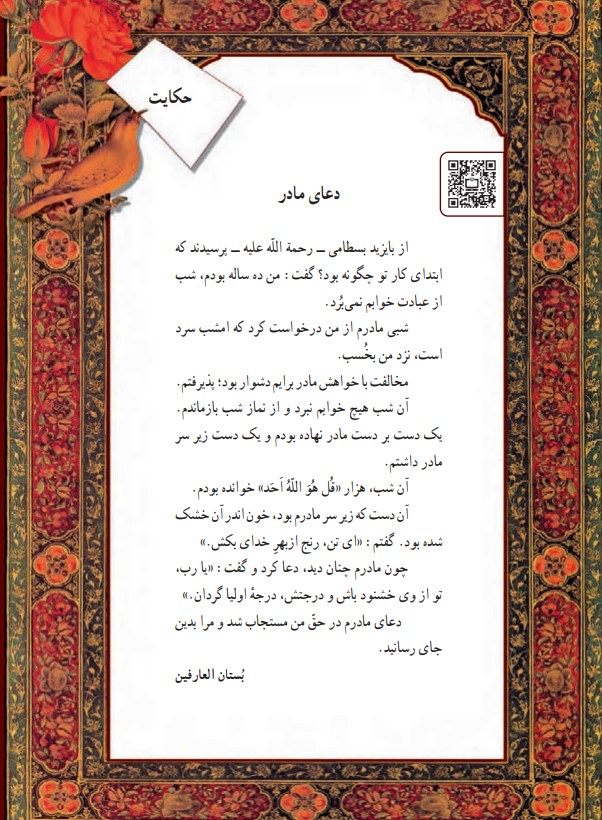 حکایت
دعای مادر
از بایزید بسطامی ــ رحمة اللّه علیه ــ پرسیدند که
ابتدای کار تو چگونه بود؟ گفت : من ده ساله بودم، شب
از عبادت خوابم نمی‌بُرد.
شبی مادرم از من درخواست کرد که امشب سرد
است، نزد من بخُسب.
مخالفت با خواهش مادر برایم دشوار بود؛ پذیرفتم.
آن شب هیچ خوابم نبرد و از نماز شب بازماندم.
یک دست بر دست مادر نهاده بودم و یک دست زیر سر
مادر داشتم.
آن شب، هزار «قُل هُوَ اللّهُ اَحَد» خوانده بودم.
آن دست که زیر سر مادرم بود، خون اندر آن خشک
شده بود. گفتم : «ای تن، رنج ازبهرِ خدای بکش.»
چون مادرم چنان دید، دعا کرد و گفت : «یا رب،
تو از وی خشنود باش و درجتش، درجهٔ اولیا گردان.»
دعای مادرم در حقّ من مستجاب شد و مرا بدین
جای رسانید.
بُستان العارفین